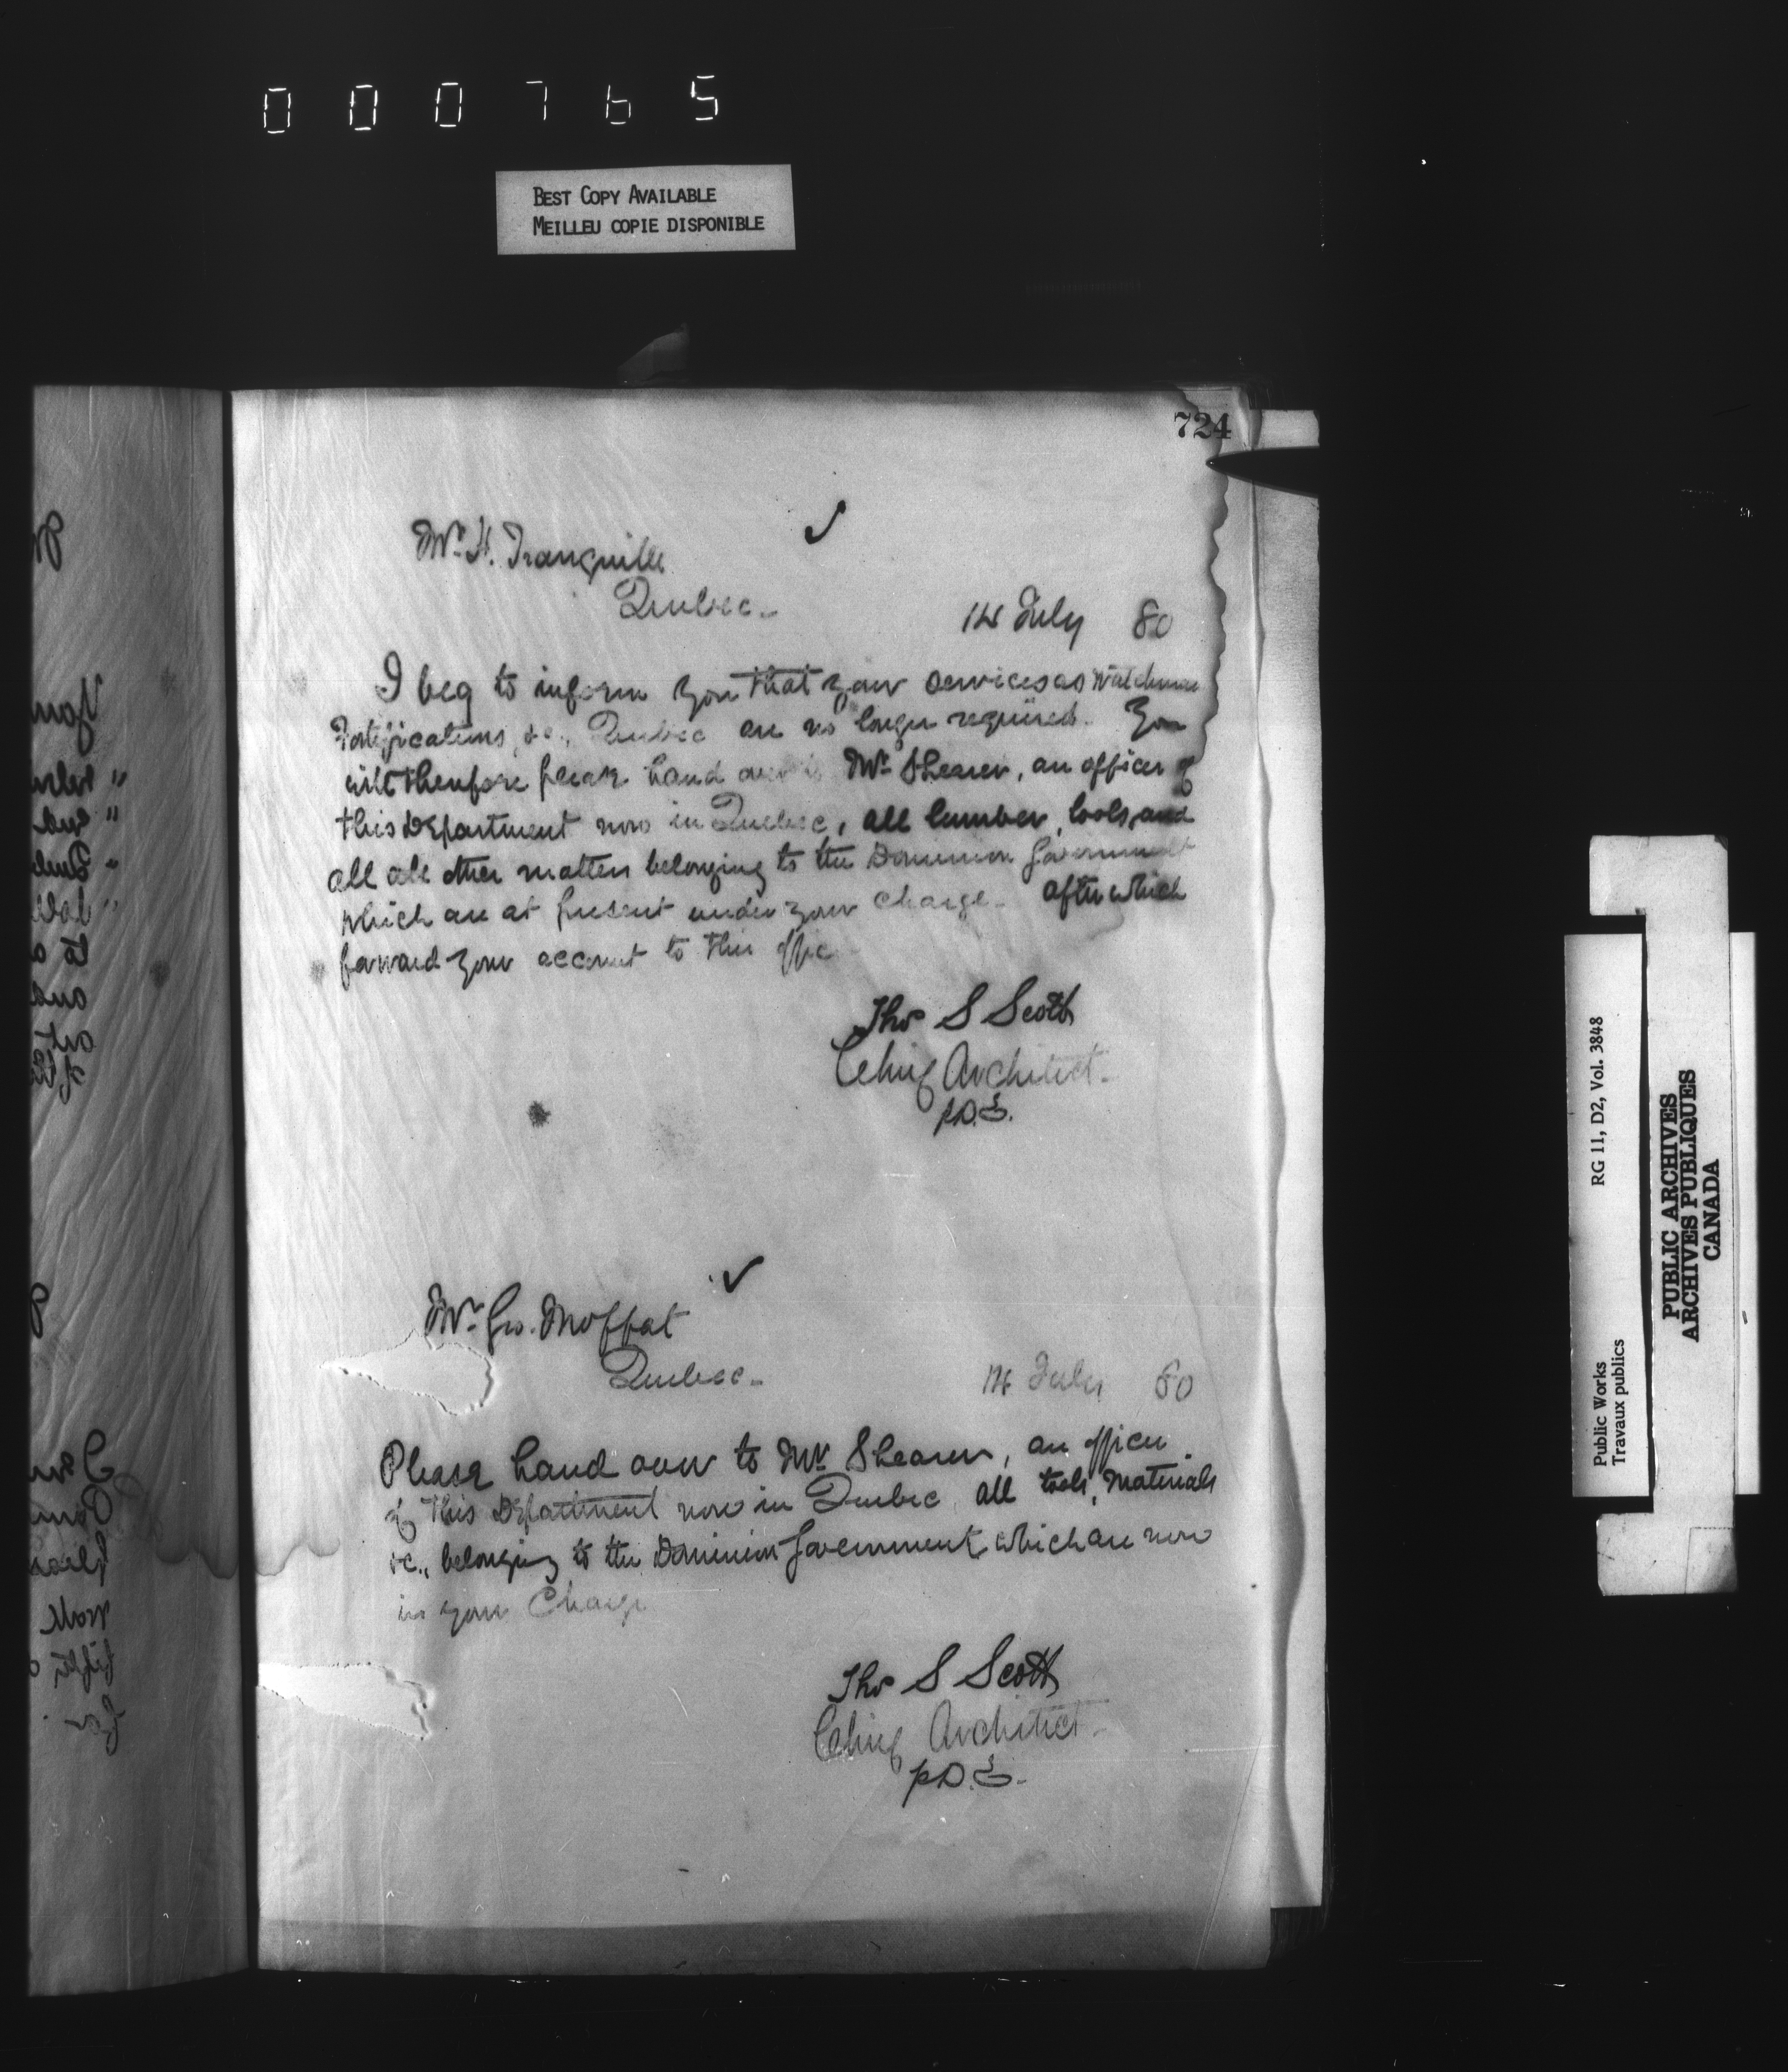 000765
BEST COPY AVAILABLE
MEILLEU COPIE DISPONIBLE
724
Mr. H. Tranquille
Quebec.
14 July 80
I beg to inform you that your services as Watchman
Fortifications, &c., Quebec are no longer required. You
will therefore please hand over to Mr. Shearer, an officer of
this Department now in Quebec, all lumber, tools, and
all all other matters belonging to the Dominion Government
which are at present under your charge. after which
forward your account to this office
Thos S Scott
Chief Architect.
Mr. Geo. Moffat
Quebec.
14 July 80
Please hand over to Mr. Shearer, an officer
of this Department now in Quebec, all tools, materials
&c., belonging to the Dominion Government, which are now
in your charge
Thos S Scott
Chief Architect.
Public Works
Travaux publics
RG 11, D2, Vol. 3848
PUBLIC ARCHIVES
ARCHIVES PUBLIQUES
CANADA